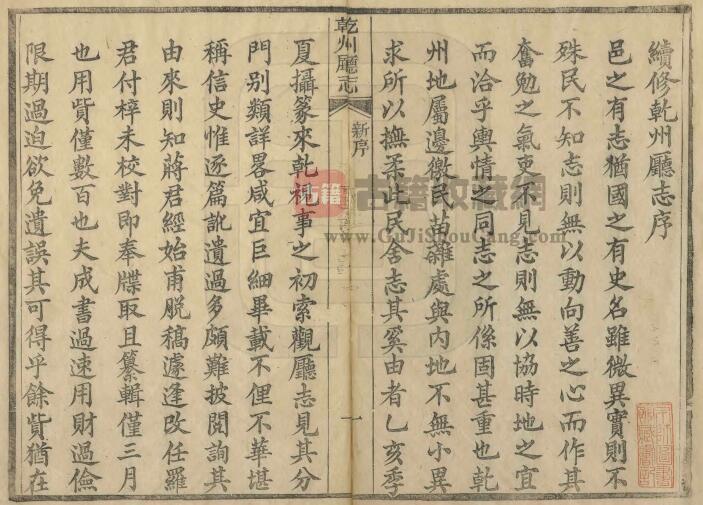 續修乾州廳志序
邑之有志猶國之有史名雖微異實則不
殊民不知志則無以動向善之心而作其
奮勉之氣吏不見志則無以協時地之宜
而洽乎輿情之同志之所係固甚重也乾
州地屬邊徼民苗雜處與内地不無小異
求所以撫柔此民舍志其奚由者乙亥季
乾州廳志
新序
一
夏攝篆來乾視事之初索觀廳志見其分
門别類詳畧咸宜巨細畢載不俚不華堪
稱信史惟逐篇訛遺過多頗難披閱詢其
由來則知蔣君經始甫脱稿遽逢改任羅
君付梓未校對即奉牒取且纂輯僅三月
也用貲僅數百也夫成書過速用財過儉
限期過迫欲免遺誤其可得乎餘貲猶在
古籍收藏網
www.GuJiShouCang.com
古籍